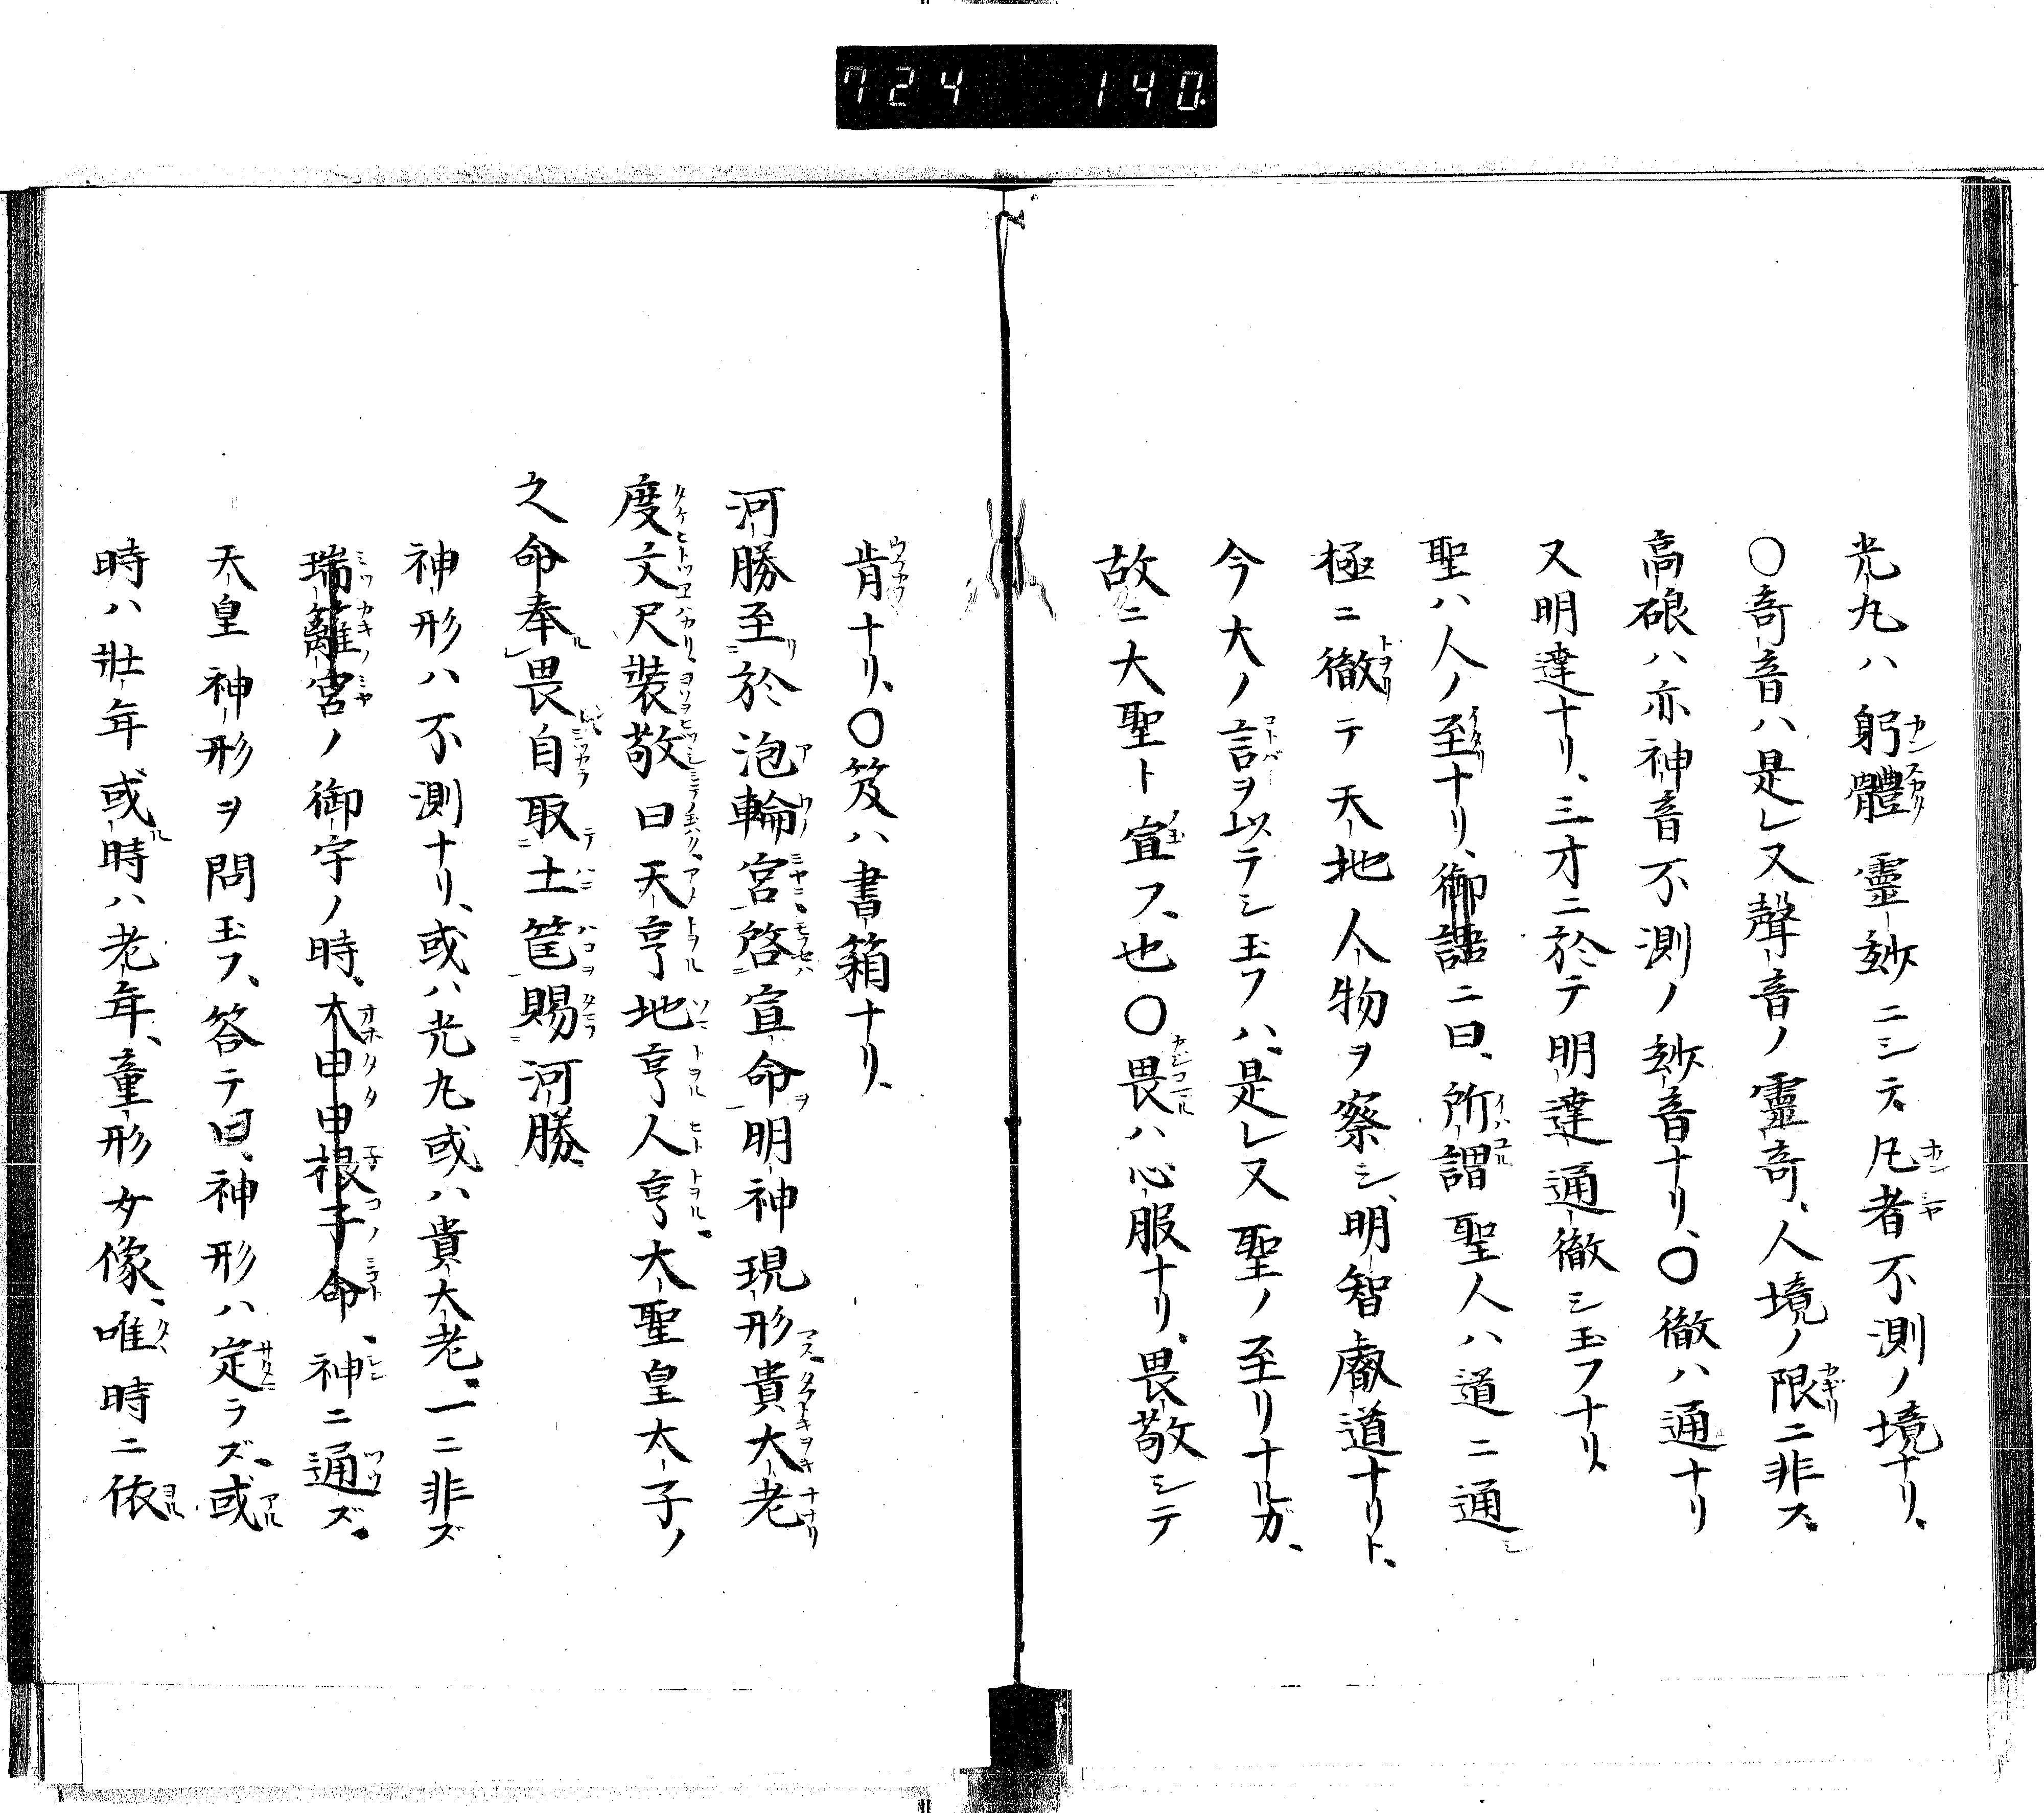 724 140
光丸ハ躬體靈妙ニシテ、凡者不測ノ境ナリ、
〇奇音ハ是レ又聲音ノ靈奇、人境ノ限ニ非ス、
高硠ハ亦神音不測ノ妙音ナリ、〇徹ハ通ナリ
又明達ナリ、三才ニ於テ明達通徹シ玉フナリ、
聖ハ人ノ至ナリ、御語ニ曰、所謂聖人ハ道ニ通シ
極ニ徹テ天地人物ヲ察シ、明智叡道ナリト、
今大ノ言ヲ以テシ玉フハ、是レ又聖ノ至リナルガ、
故ニ大聖ト宣フ、也〇畏ハ心服ナリ、畏敬シテ
肯ナリ、〇笈ハ書箱ナリ、
河勝至於泡輪宮啓宣命明神現形貴大老
度丈尺裝敬曰天亨地亨人亨大聖皇太子ノ
之命奉畏自取土筐賜河勝
神形ハ不測ナリ、或ハ光丸或ハ貴大老、一ニ非ズ
瑞籬宮ノ御宇ノ時、大申申根子命、神ニ通ズ、
天皇神形ヲ問玉フ、答テ曰、神形ハ定ラズ、或
時ハ壯年或時ハ老年、童形女像、唯時ニ依